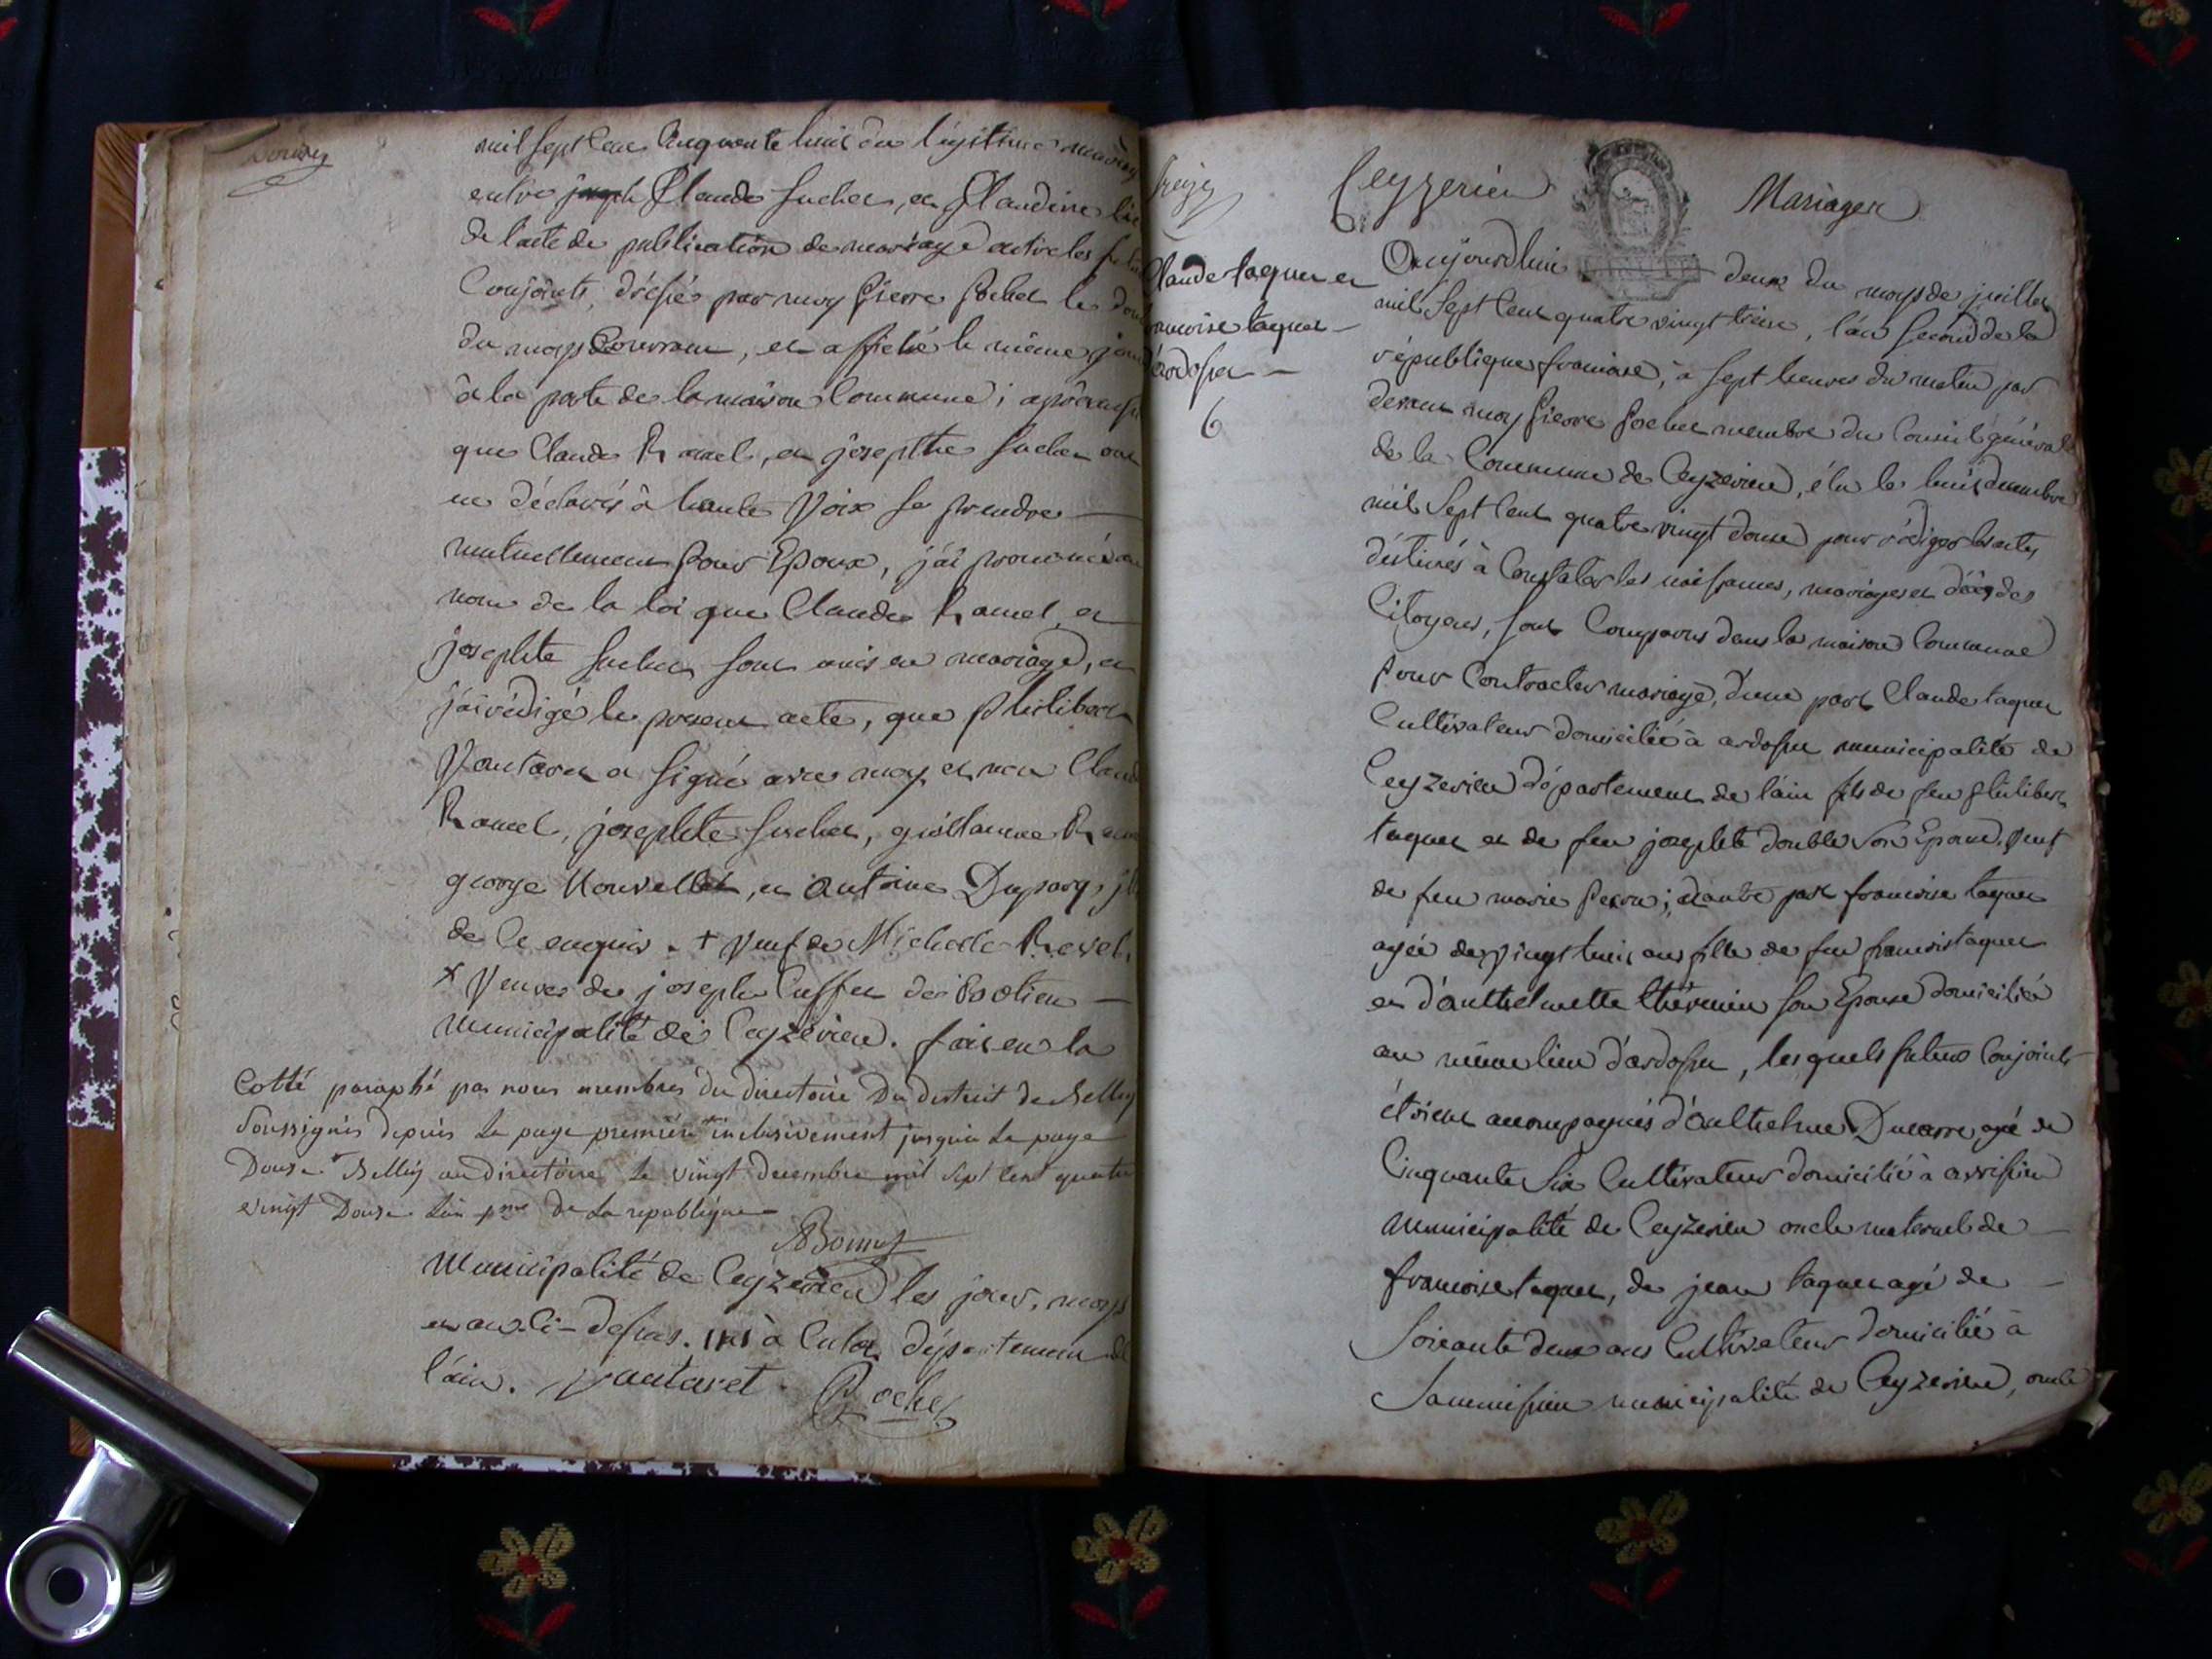 mil sept cent cinquante huit du légitime mariage
entre joseph Claude sucher, et Claudine
de l'acte de publication de mariage entre les futurs
Conjoints, dréssé par moy Pierre Pochet le
du moys Courrant, et affiché le même jour
à la porte de la maison Commune; après aussi
que Claude Ramel, et josephte suchet ont
eu déclarés à haute Voix se prendre
mutuellement pour Epoux, j'ai prononcé au
nom de la loi que Claude Ramel et
josephte suchet sont unis en mariage, et
j'ai rédigé le présent acte, que philibert
Vantaret a signé avec moy et non Claude
Ramel, josephte suchet, guillaume
george Nouvellet, et antoine Duparq,
de ce enquis. + Veuf de Michelle Revel.
x Veuve de joseph Cuffet de
municipalité de Ceyzérieu. fait en la
Cotté paraphé par nous membres du directoire Du district de Belley
Soussignés depuis la page première inclusivement jusqu'à la page
Douze. Belley au directoire le vingt decembre mil sept cent quatre
vingt Douze L'an 1er De la republique
Municipalité de Ceyzérieu les jour, moys
et an ci-dessus. à Culoz département de
l'ain. Vantaret Pochet
treize
Ceyzerieu Mariages
Claude taquet et
francoise taquet
d'ardosset
6
Aujourdhui deux du moys de juillet
mil sept cent quatre vingt treize, l'an second de la
république francaise, à sept heures du matin par
devant moy Pierre Pochet membre du Conseil général
de la Commune de Ceyzerieu, élu le huit decembre
mil sept cent quatre vingt douze pour rédiger les actes
déstinés à Constater les naissances, mariages et décès des
Citoyens, sont Comparus dans la maison Commune
pour Contracter mariage, d'une part Claude taquet
Cultivateur domicilié à ardosset municipalité de
Ceyzerieu département de l'ain fils de feu philibert
taquet et de feu josephte double son Epouse, veuf
de feu marie Perou; d'autre part francoise taquet
agée de vingt huit ans fille de feu francois taquet
et d'anthelmette thévenin son Epouse domiciliée
au même lieu d'ardosset, lesquels futurs Conjoints
étoient accompagnés d'anthelme Ducarre agé de
Cinquante six Cultivateur domicilié à avrissieu
municipalité de Ceyzerieu oncle maternel de
francoise taquet, de jean taquet agé de
soixante deux ans Cultivateur domicilié à
municipalité de Ceyzerieu, oncle